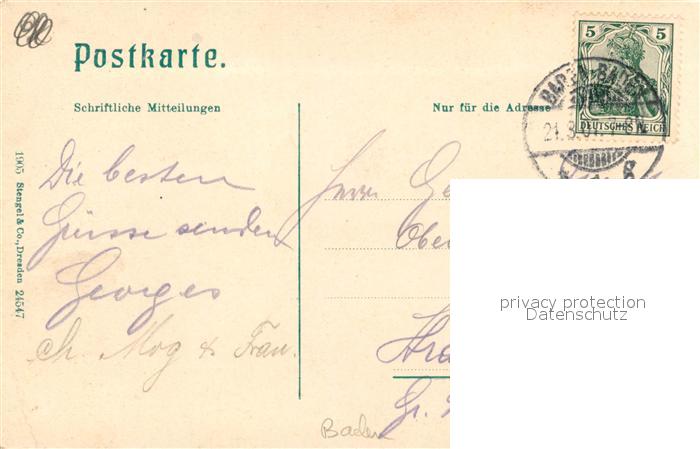 Postkarte.
Schriftliche Mitteilungen
Nur für die Adresse
5 5
DEUTSCHES REICH
BADEN-BADEN
1905 Stengel & Co., Dresden 24547
Die besten
Grüsse senden
Georges
Ch. Mog & Frau.
Herrn
Baden
privacy protection
Datenschutz